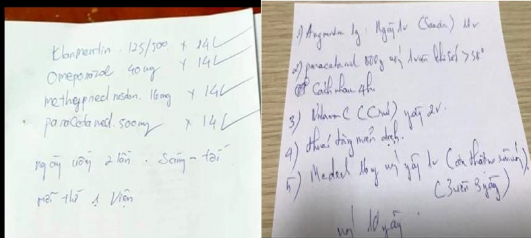 Klamentin. 125/500 x 14
Omeprazol 40mg x 14
methyppred nisolon. 16mg x 14
paracetamol. 500mg x 14
ngày uống 2 lần. Sáng - tối
mỗi thứ 1 viên
1) Augmentin 1g. Ngày 2v (Sandoz)
2) paracetamol 500g uống 1 viên khi sốt > 38°
Cách nhau 4h
3) Vitamin C (C sủi) ngày 2v.
4) thuốc tăng miễn dịch.
5) Medrol 16g uống ngày 1v
(3 viên 3 ngày)
uống 10 ngày.